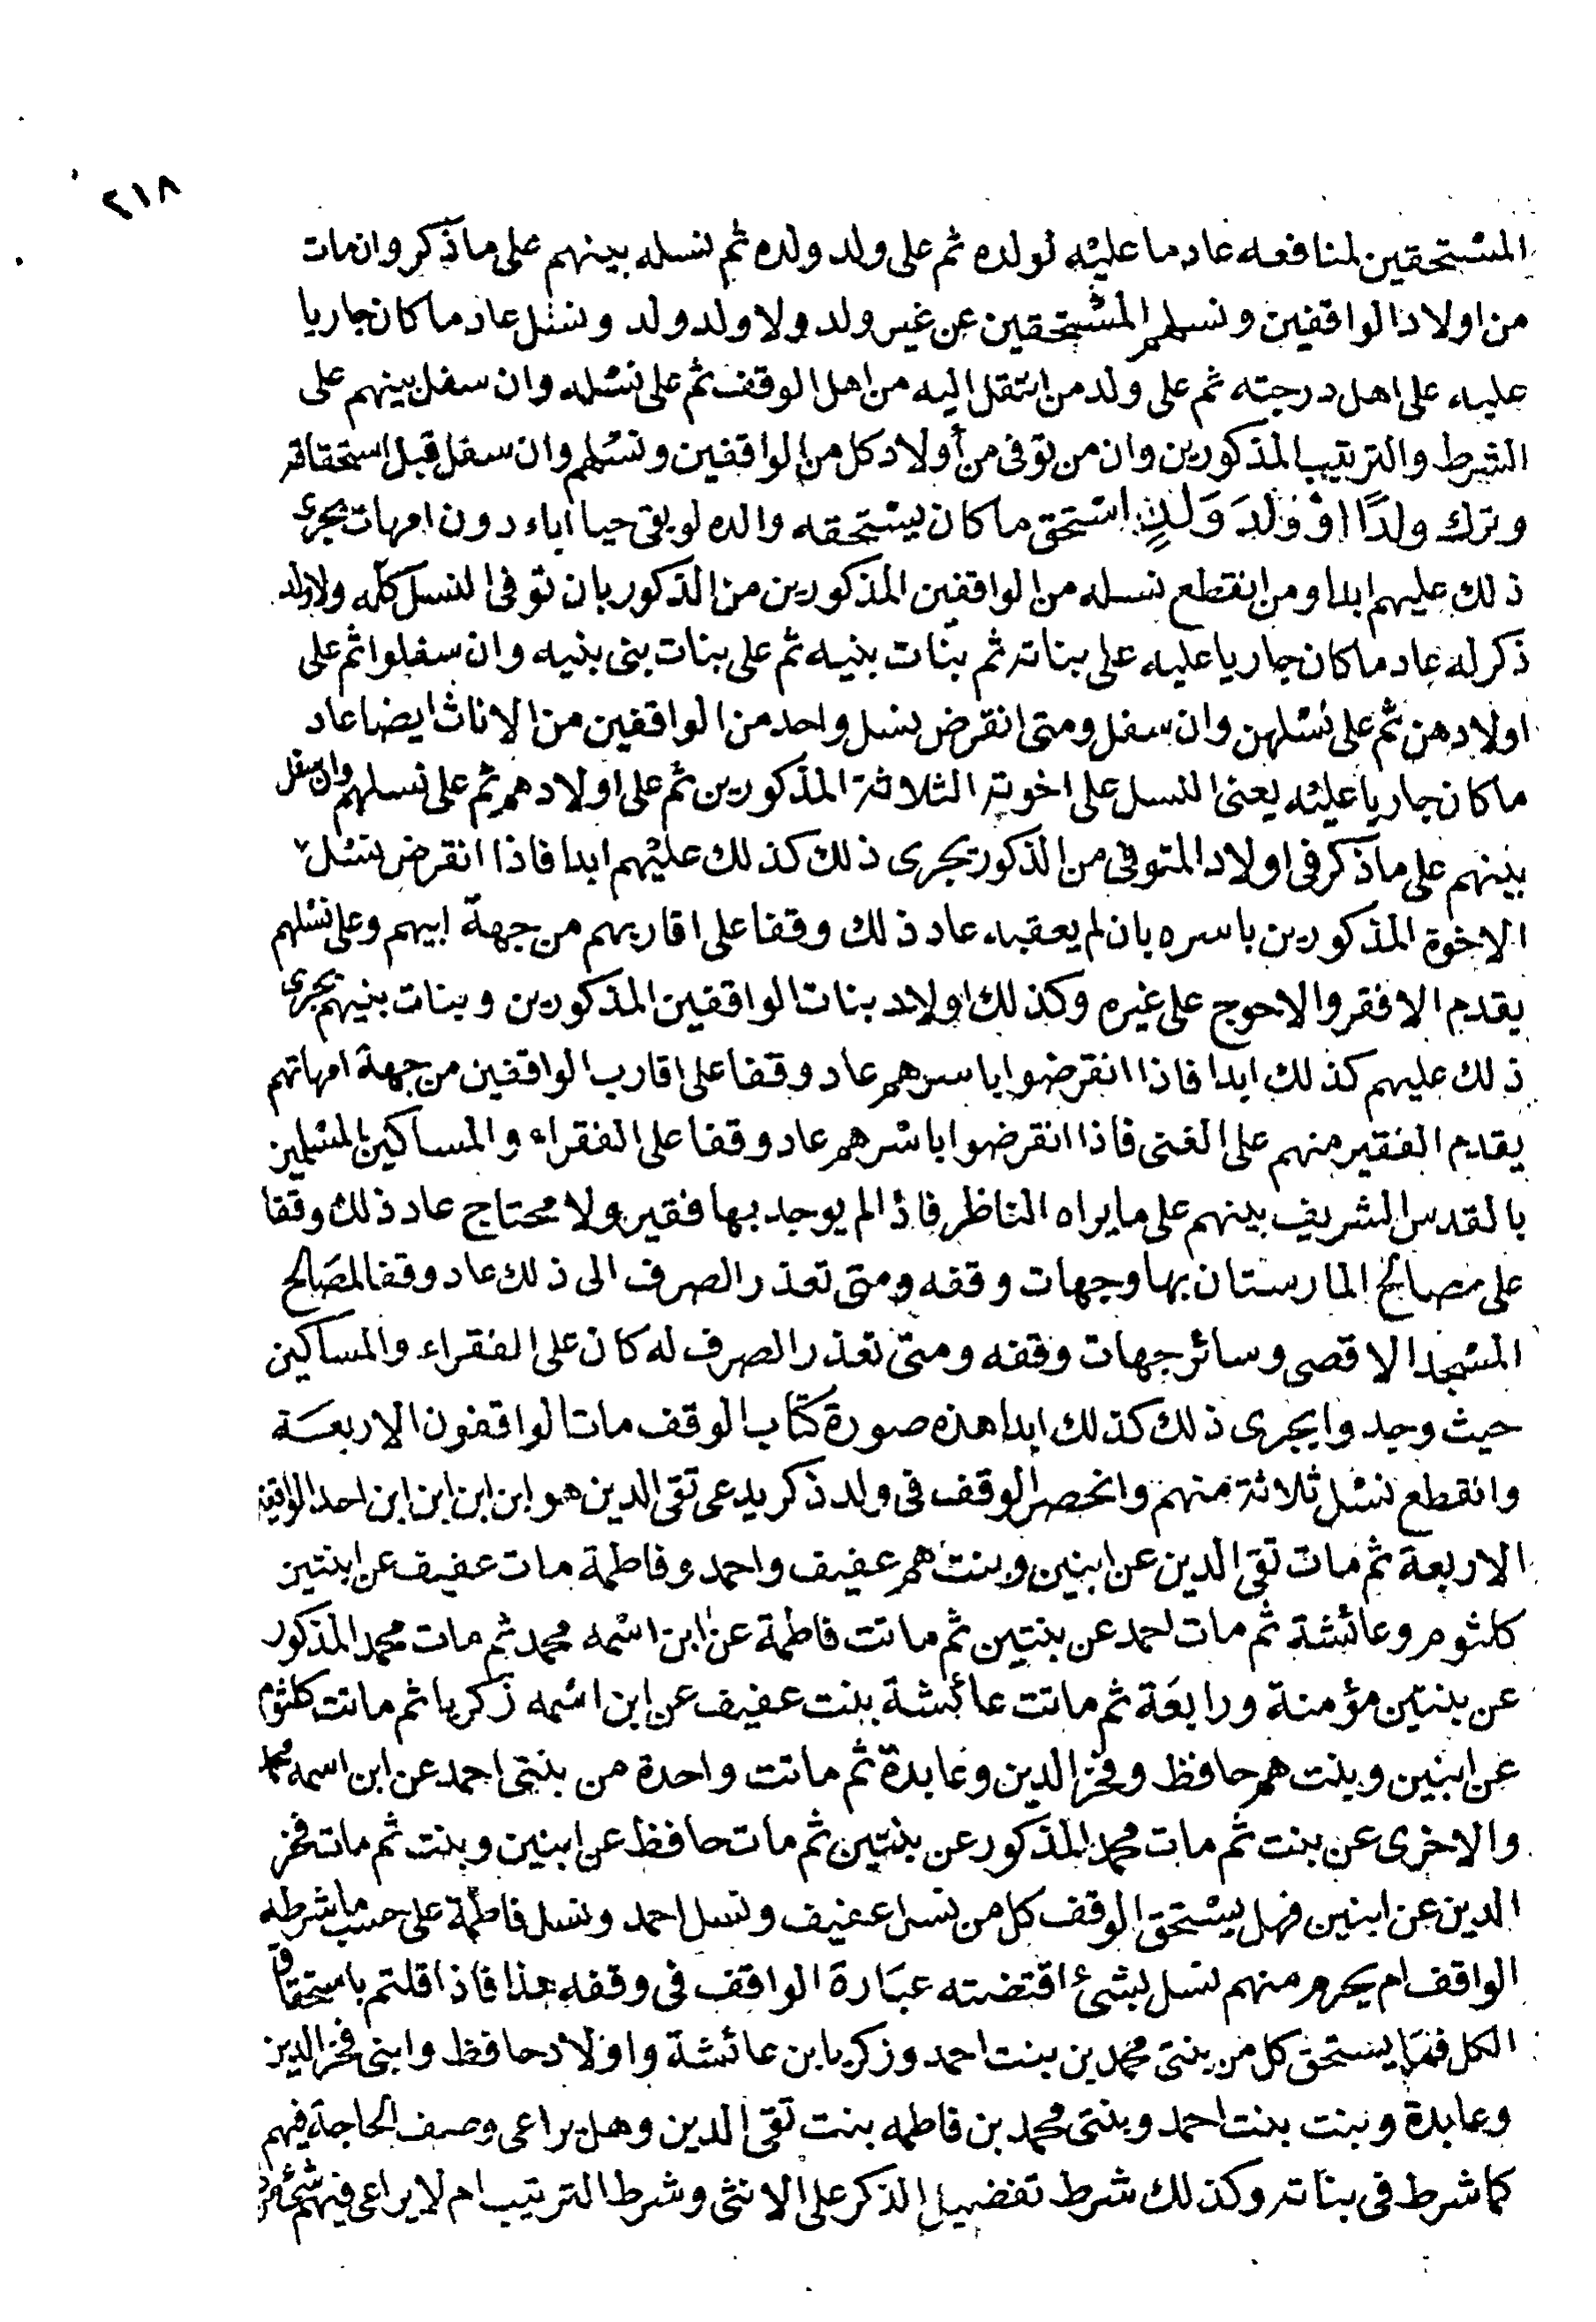 ٢١٨
المستحقين لمنافعه عاد ما عليه لولده ثم على ولد ولده ثم نسله بينهم على ما ذكر وان مات
من اولاد الواقفين ونسلهم المستحقين عن غير ولد ولا ولد ولد ونسل عاد ما كان جاريا
عليه على اهل درجته ثم على ولد من انتقل اليه من اهل الوقف ثم على نسله وان سفل بينهم على
الشرط والترتيب المذكورين وان من توفى من أولاد كل من الواقفين ونسلهم وان سفل قبل استحقاقه
وترك ولدًا او وَلَدَ وَلَدٍ استحق ما كان يستحقه والده لو بقى حيا اباء دون امهات يجرى
ذلك عليهم ابدا ومن انقطع نسله من الواقفين المذكورين من الذكور بان توفى النسل كله ولا ولد
ذكر له عاد ما كان جاريا عليه على بناته ثم بنات بنيه ثم على بنات بنى بنيه وان سفلوا ثم على
اولادهن ثم على نسلهن وان سفل ومتى انقرض نسل واحد من الواقفين من الاناث ايضا عاد
ما كان جاريا عليه يعنى النسل على اخوته الثلاثة المذكورين ثم على اولادهم ثم على نسلهم وان سفل
بينهم على ما ذكر فى اولاد المتوفى من الذكور يجرى ذلك كذلك عليهم ابدا فاذا انقرض نسل
الاخوة المذكورين باسره بان لم يعقبه عاد ذلك وقفا على اقاربهم من جهة ابيهم وعلى نسلهم
يقدم الافقر والاحوج على غيره وكذلك اولاد بنات الواقفين المذكورين وبنات بنيهم يجرى
ذلك عليهم كذلك ابدا فاذا انقرضوا باسرهم عاد وقفا على اقارب الواقفين من جهة امهاتهم
يقدم الفقير منهم على الغنى فاذا انقرضوا باسرهم عاد وقفا على الفقراء والمساكين المسلمين
بالقدس الشريف بينهم على ما يراه الناظر فاذا لم يوجد بها فقير ولا محتاج عاد ذلك وقفا
على مصالح المارستان بها وجهات وقفه ومتى تعذر الصرف الى ذلك عاد وقفا لمصالح
المسجد الاقصى وسائر جهات وقفه ومتى تعذر الصرف له كان على الفقراء والمساكين
حيث وجدوا يجرى ذلك كذلك ابدا هذه صورة كتاب الوقف مات الواقفون الاربعة
وانقطع نسل ثلاثة منهم وانحصر الوقف فى ولد ذكر يدعى تقى الدين هو ابن ابن ابن ابن احد الواقفين
الاربعة ثم مات تقى الدين عن ابنين وبنت هم عفيف واحمد وفاطمة مات عفيف عن ابنتين
كلثوم وعائشة ثم مات احمد عن بنتين ثم ماتت فاطمة عن ابن اسمه محمد ثم مات محمد المذكور
عن بنتين مؤمنة ورابعة ثم ماتت عائشة بنت عفيف عن ابن اسمه زكريا ثم ماتت كلثوم
عن ابنين وبنت هم حافظ وفخر الدين وعابدة ثم ماتت واحدة من بنتى احمد عن ابن اسمه محمد
والاخرى عن بنت ثم مات محمد المذكور عن بنتين ثم مات حافظ عن ابنين وبنت ثم مات فخر
الدين عن ابنين فهل يستحق الوقف كل من نسل عفيف ونسل احمد ونسل فاطمة على حسب ما شرطه
الواقف ام يحرم منهم نسل لشىء اقتضته عبارة الواقف فى وقفه هذا فاذا قلتم باستحقاق
الكل فما يستحق كل من بنتى محمد بن بنت احمد وزكريا بن عائشة واولاد حافظ وابنى فخر الدين
وعابدة وبنت بنت احمد وبنتى محمد بن فاطمه بنت تقى الدين وهل يراعى وصف الحاجة فيهم
كما شرط فى بناته وكذلك شرط تفضيل الذكر على الانثى وشرط الترتيب ام لا يراعى فيهم شىء من